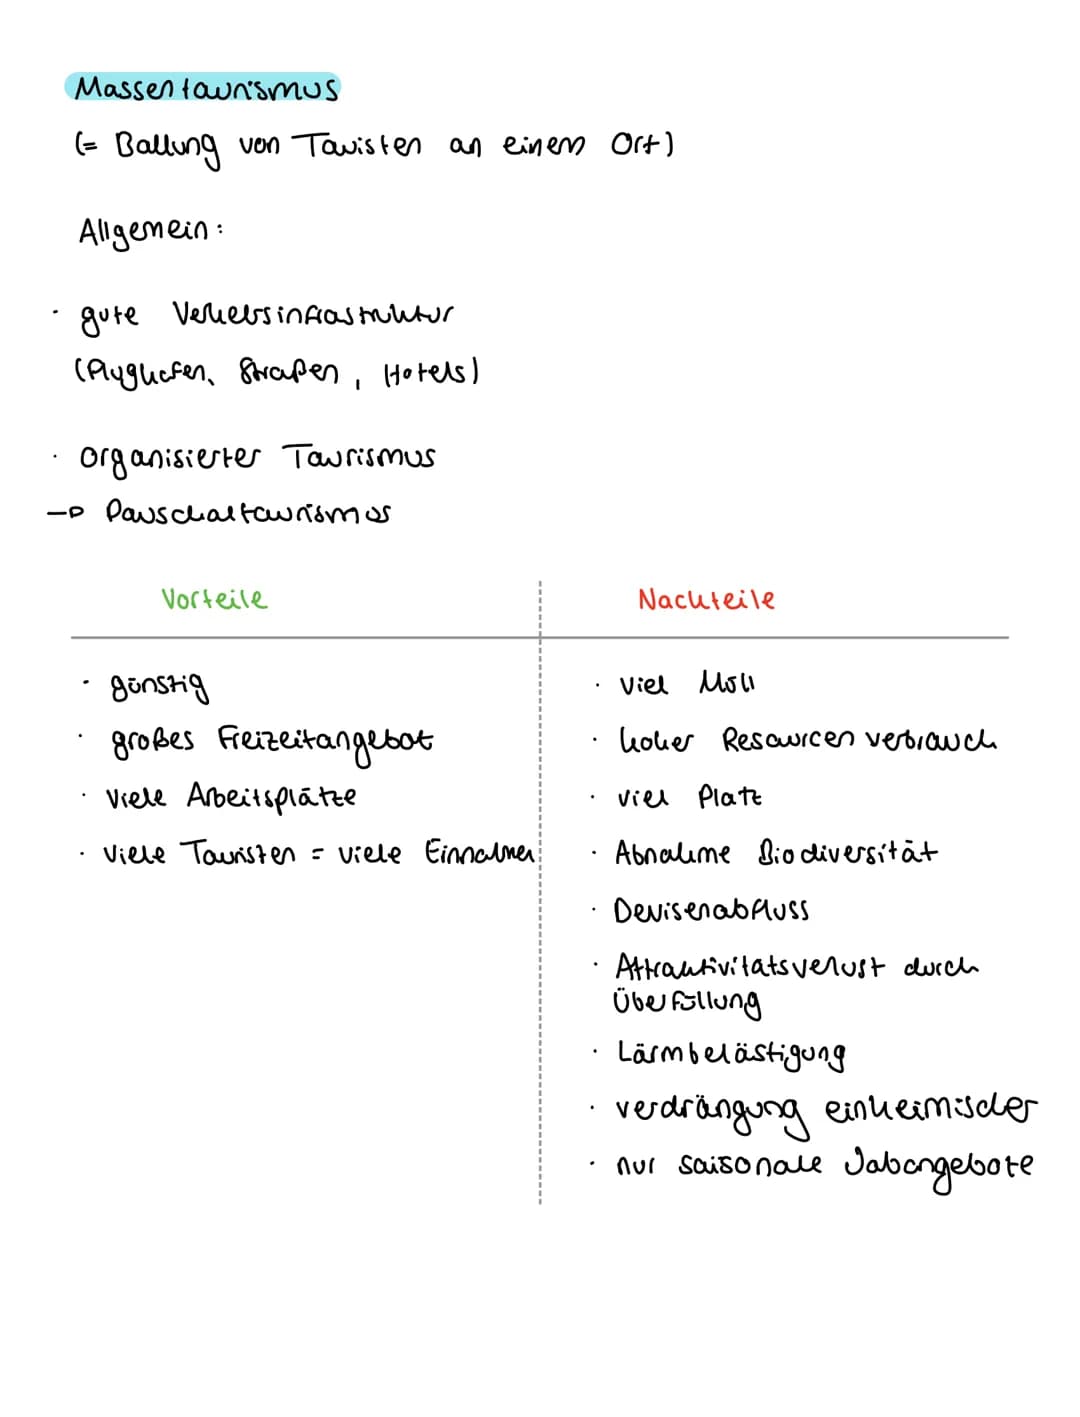 Massentourismus
(= Ballung von Touristen an einem Ort)
Allgemein:
· gute Verkehrsinfrastruktur
(Flughäfen, Straßen, Hotels)
· organisierter Tourismus
→ Pauschaltourismus
Vorteile
Nachteile
· günstig
· großes Freizeitangebot
· viele Arbeitsplätze
· viele Touristen = viele Einnahmen
· viel Müll
· hoher Resourcenverbrauch
· viel Platz
· Abnahme Biodiversität
· Devisenabfluss
· Attraktivitätsverlust durch
Überfüllung
· Lärmbelästigung
· verdrängung einheimischer
· nur saisonale Jobangebote